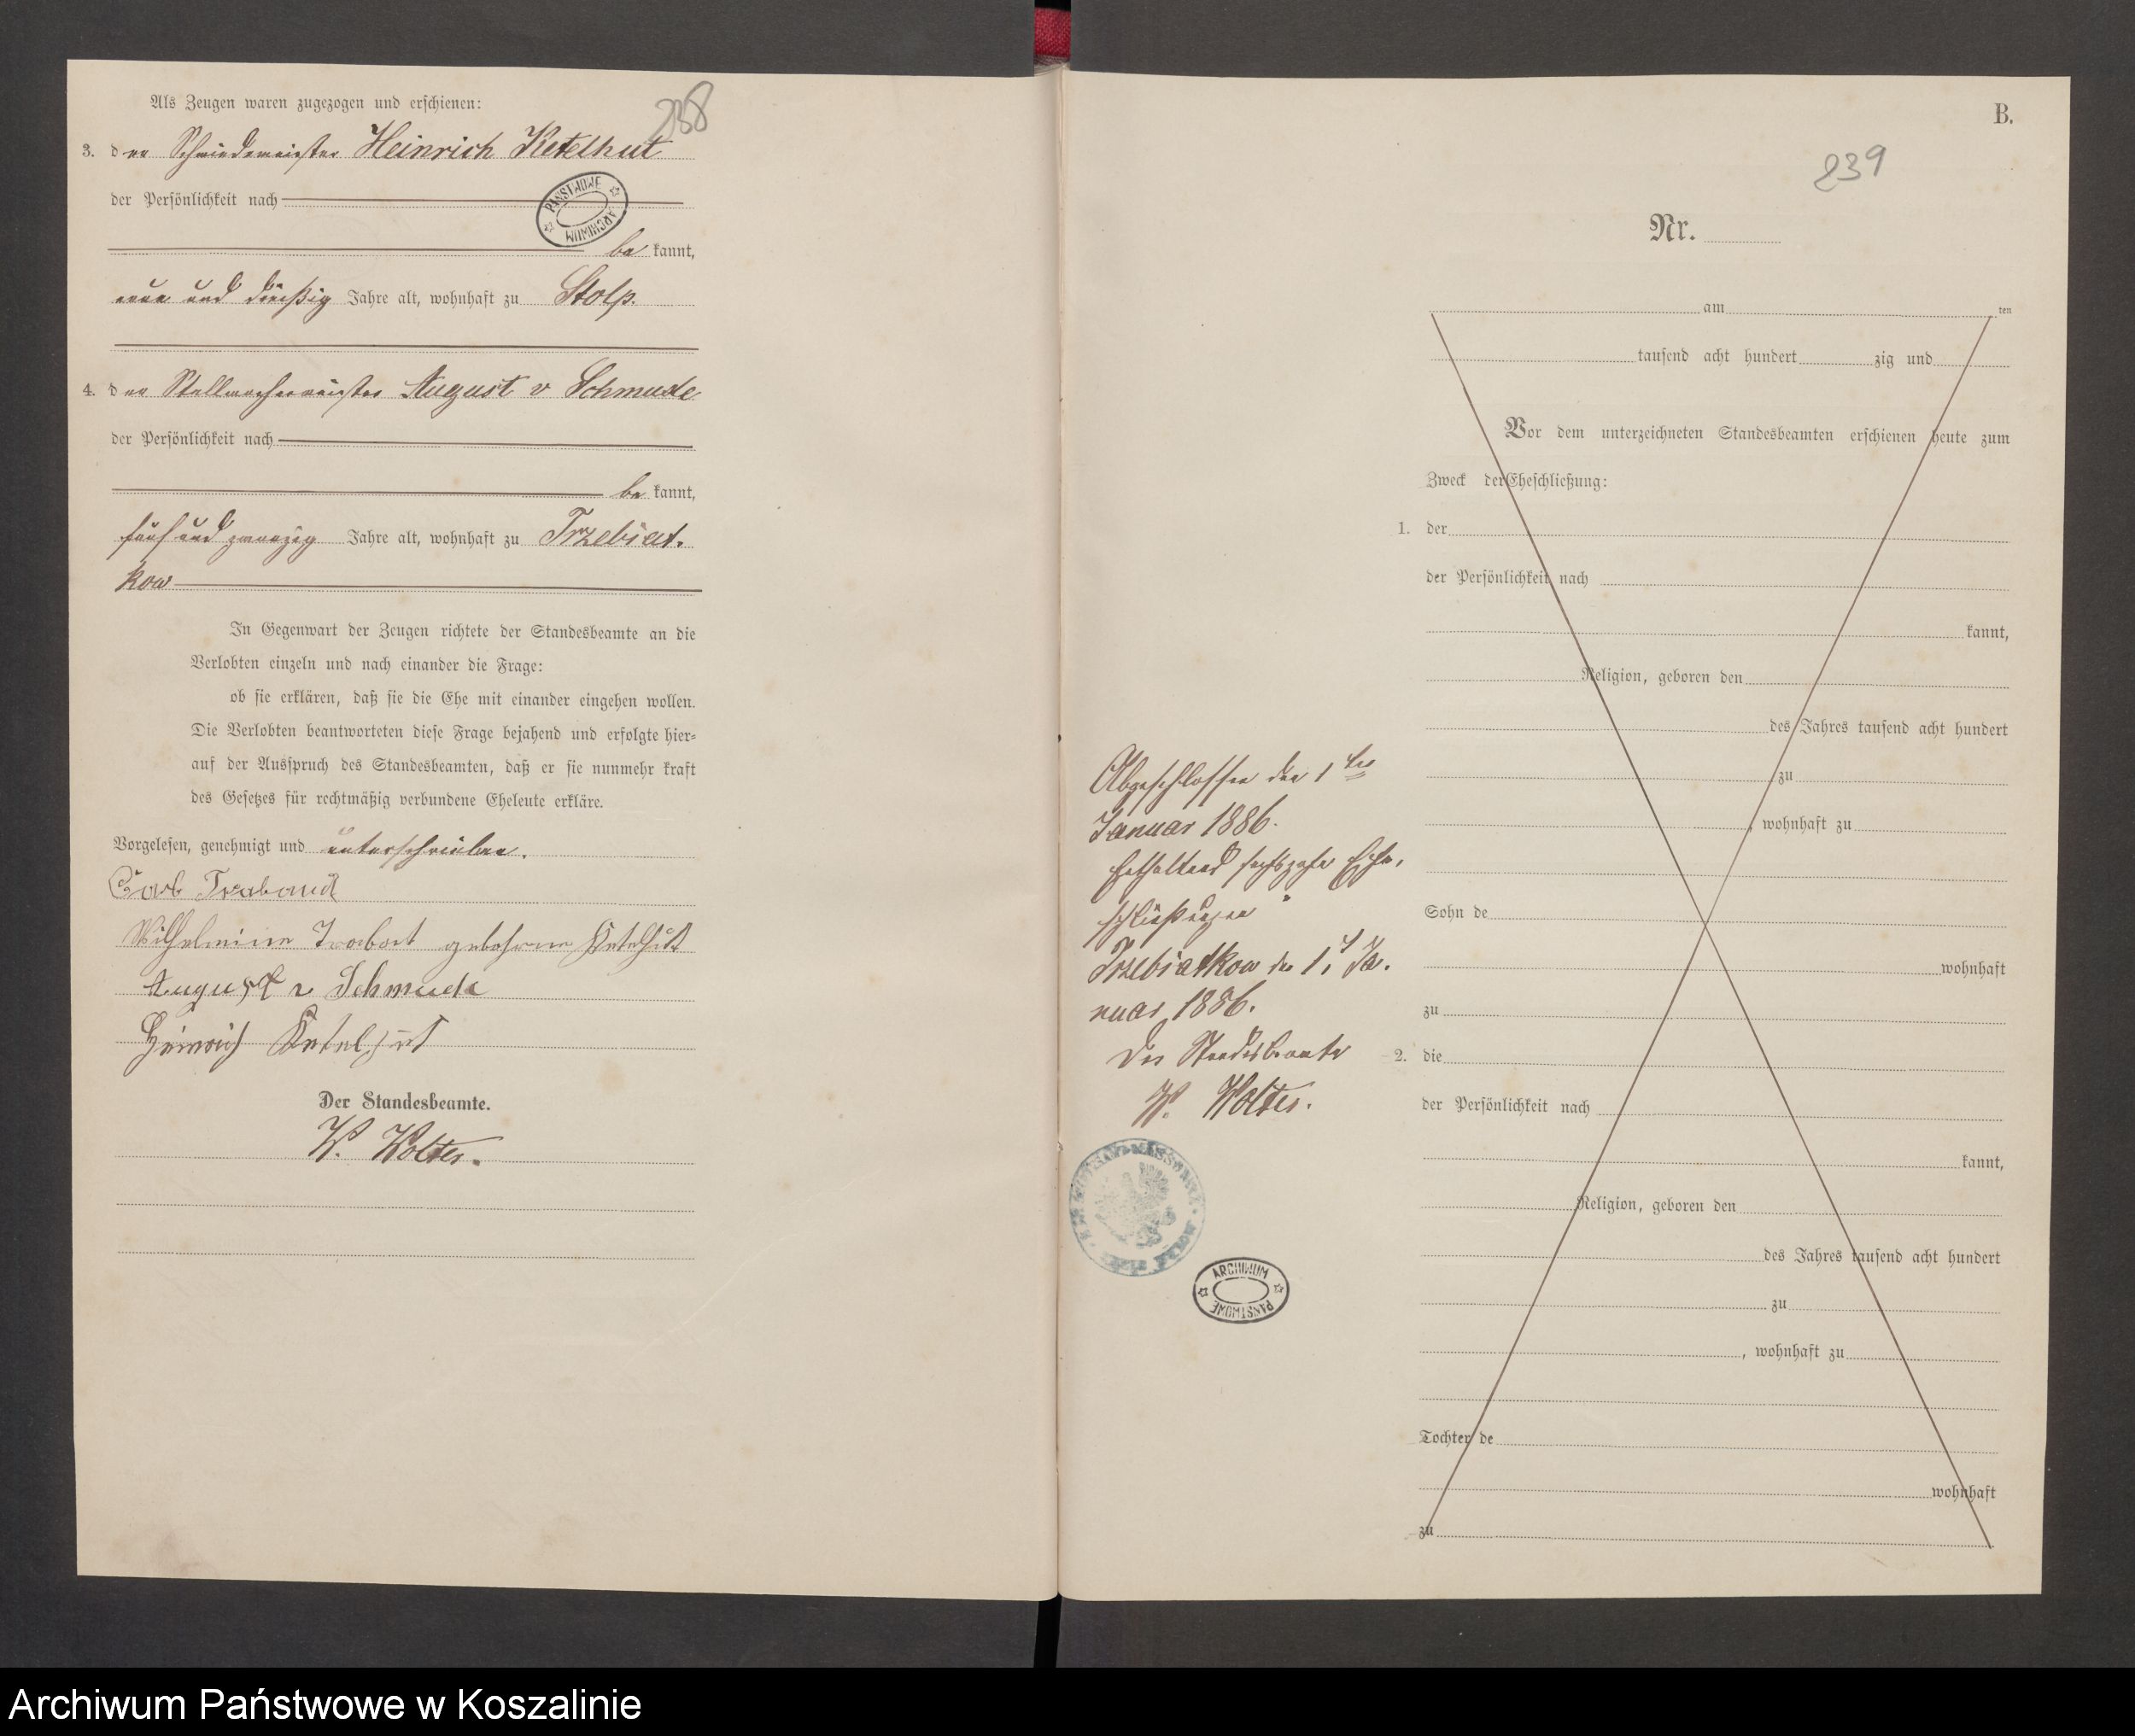 238
Als Zeugen waren zugezogen und erschienen:
3. der Schmiedemeister Heinrich Ketelhut
der Persönlichkeit nach
PAŃSTWOWE ARCHIWUM
be kannt,
neun und dreißig Jahre alt, wohnhaft zu Stolp.
4. der Stellmachermeister August v Schmude
der Persönlichkeit nach
be kannt,
fünf und zwanzig Jahre alt, wohnhaft zu Trzebiat-
kow
In Gegenwart der Zeugen richtete der Standesbeamte an die
Verlobten einzeln und nach einander die Frage:
ob sie erklären, daß sie die Ehe mit einander eingehen wollen.
Die Verlobten beantworteten diese Frage bejahend und erfolgte hier-
auf der Ausspruch des Standesbeamten, daß er sie nunmehr kraft
des Gesetzes für rechtmäßig verbundene Eheleute erkläre.
Vorgelesen, genehmigt und unterschrieben.
Carl Traband
Wilhelmine Trabant geborene Ketelhut
August v Schmude
Heinrich Ketelhut
Der Standesbeamte.
W. Wolter.
Abgeschlossen den 1ten
Januar 1886.
Enthaltend sechszehn Ehe-
schließungen
Trzebiatkow den 1. Ja-
nuar 1886.
Der Standesbeamte
W. Wolter.
ARCHIWUM PAŃSTWOWE
B.
239
Nr.
am ten
tausend acht hundert zig und
Vor dem unterzeichneten Standesbeamten erschienen heute zum
Zweck der Eheschließung:
1. der
der Persönlichkeit nach
kannt,
Religion, geboren den
des Jahres tausend acht hundert
zu
, wohnhaft zu
Sohn de
wohnhaft
zu
2. die
der Persönlichkeit nach
kannt,
Religion, geboren den
des Jahres tausend acht hundert
zu
, wohnhaft zu
Tochter de
wohnhaft
zu
Archiwum Państwowe w Koszalinie